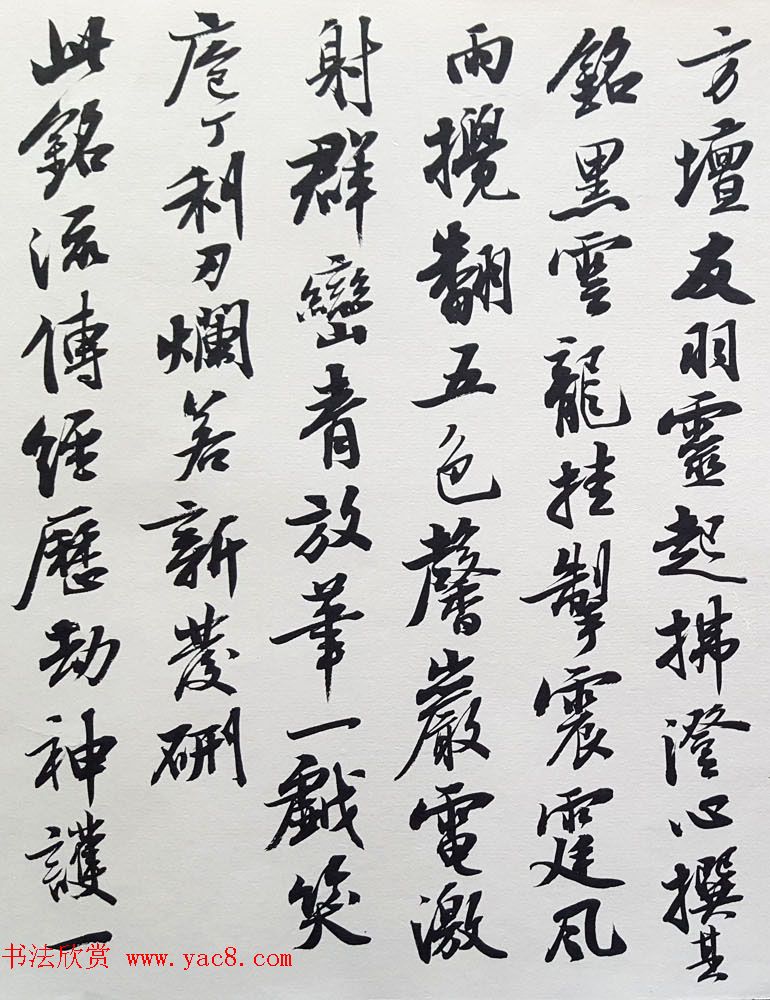 方壇友羽靈起拂澄心撰其
銘黑雲龍挂掣震霆風
雨攪翻五色馨巖電激
射群巒青放筆一戲笑
庖丁利刃爛若新發硎
此銘流傳經歷劫神護一
书法欣赏 www.yac8.com